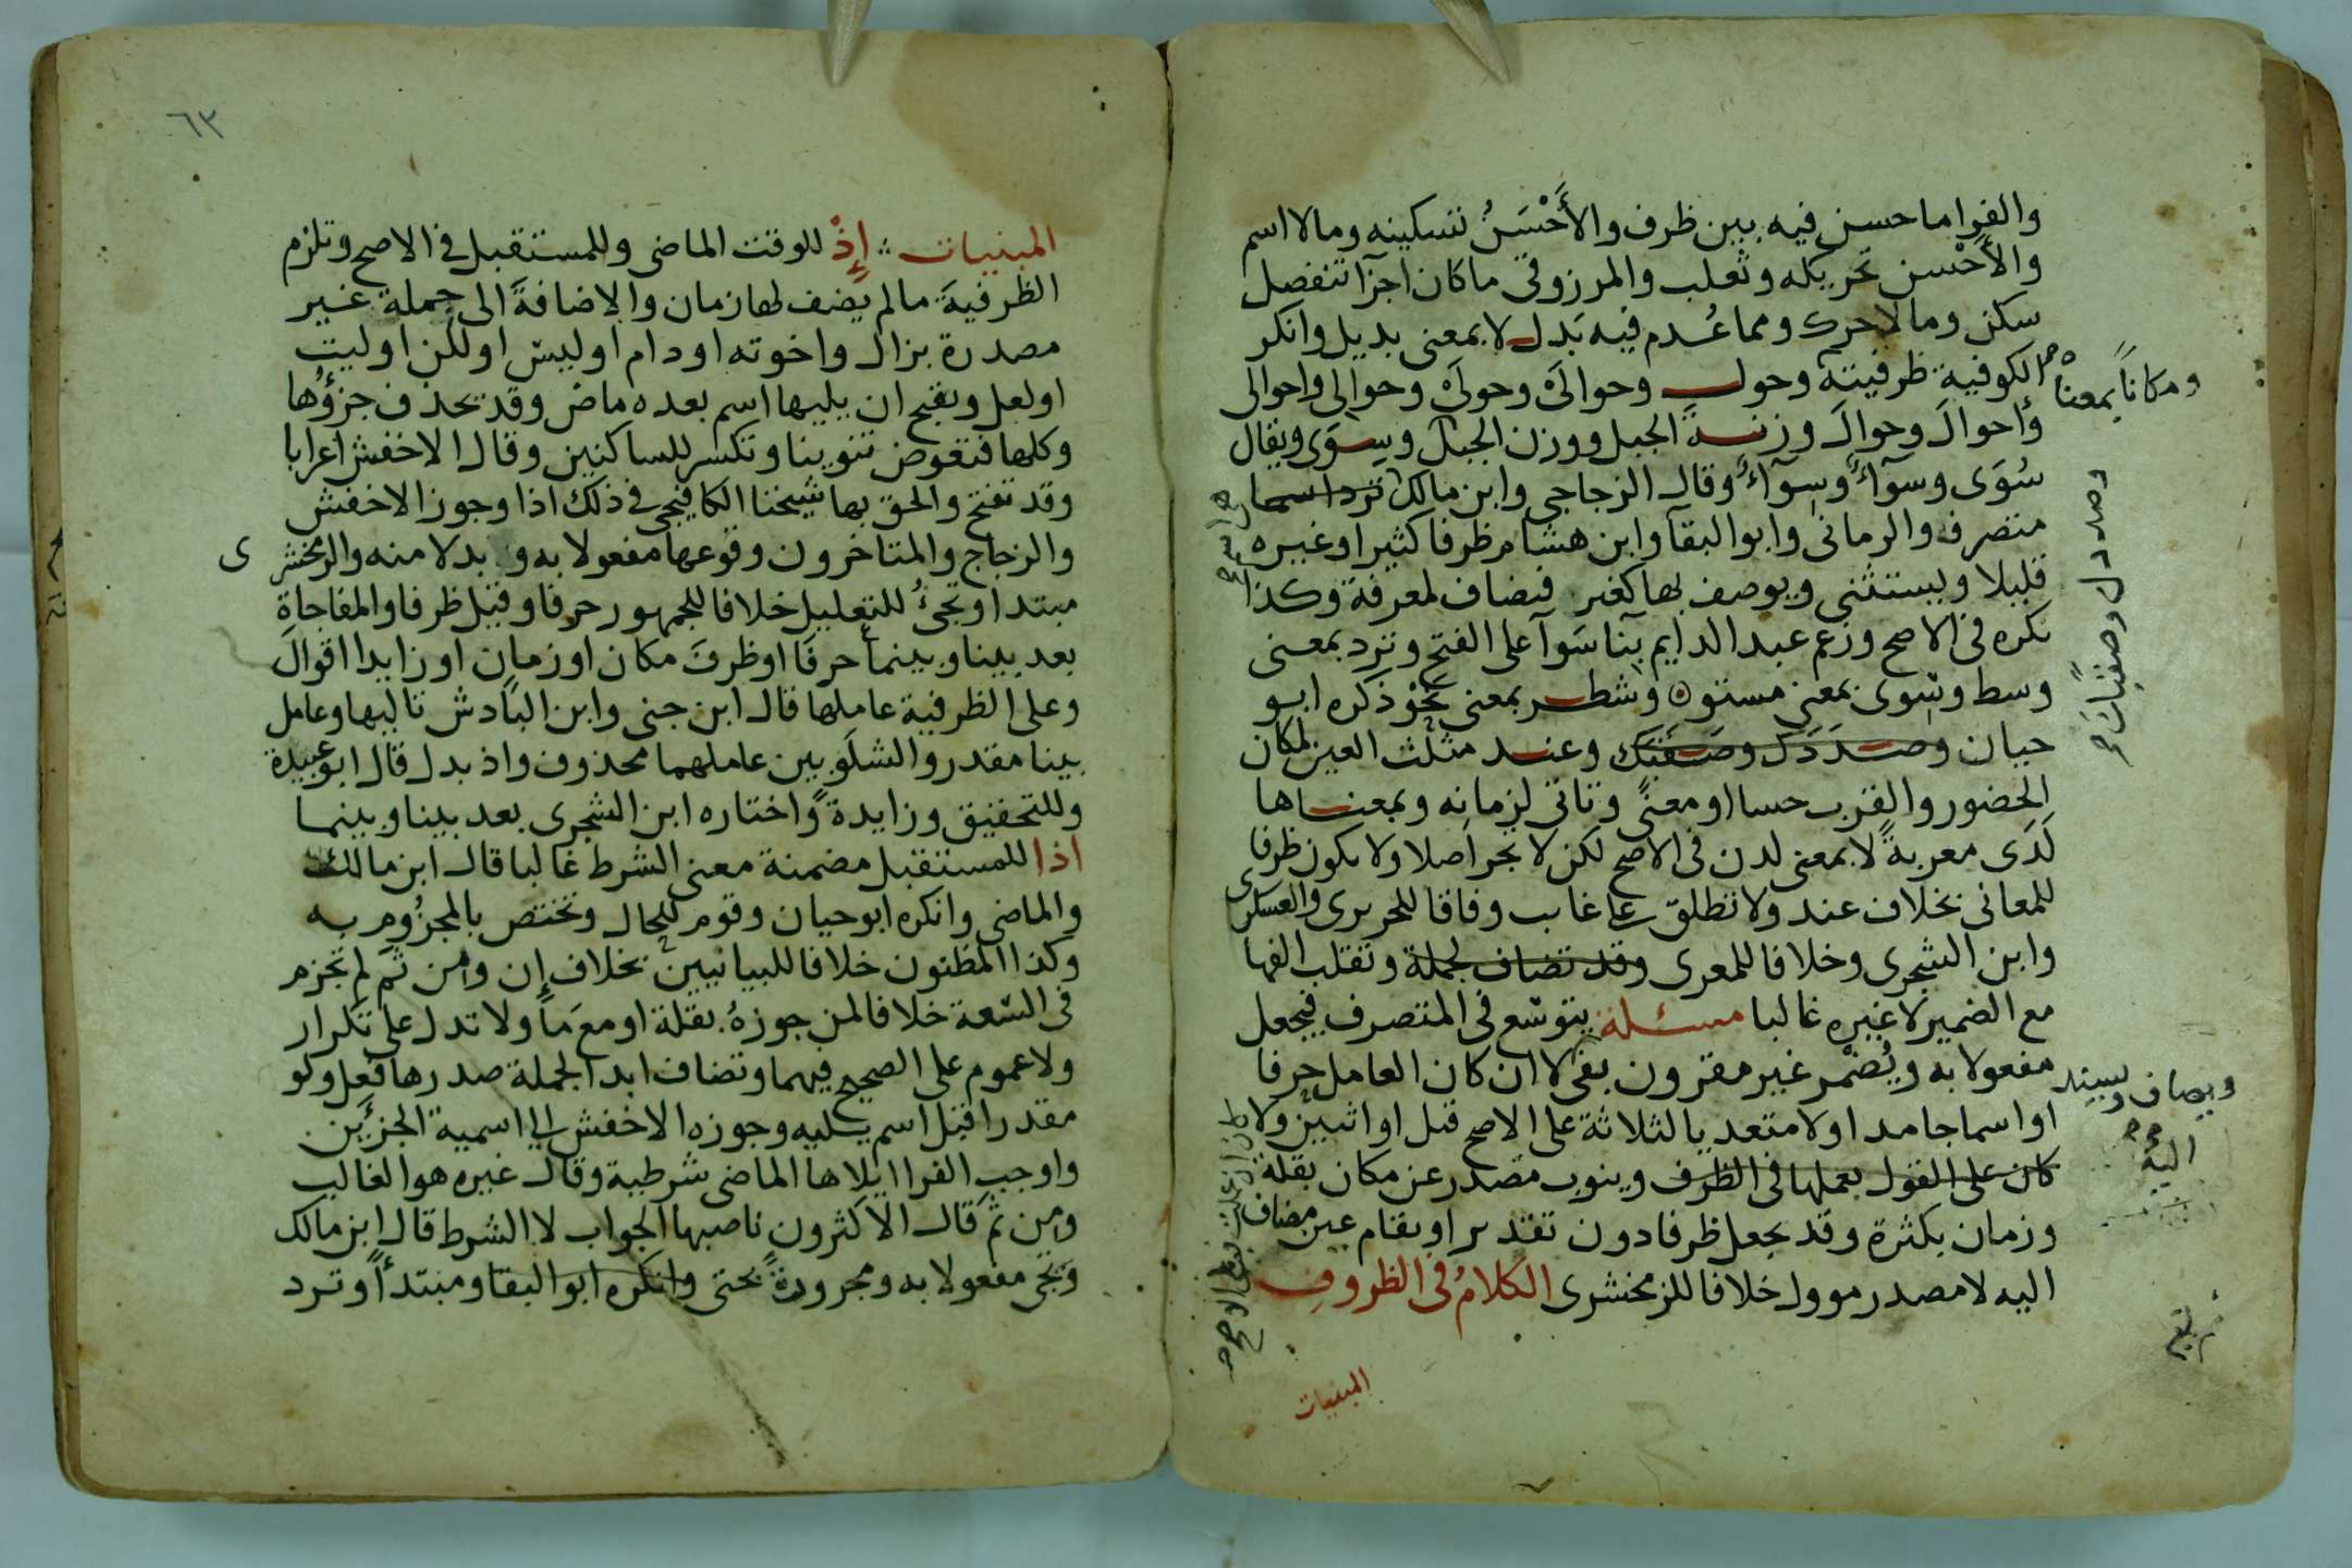 والفرا ما حسن فيه بين ظرف والأَحْسَنُ تسكينه وما لا اسم
والأَحْسن تحريكه وثعلب والمرزوقي ما كان اجزآ تنفصل
سكن وما لا حرك ومما عُدم فيه بَدل لا بمعنى بديل وانكر
الكوفية ظرفيته وحول وحوالَيْ وحولَيْ وحوالى واحوالى
ومكاناً بمعناه
وأحوالَ وحوالَ وزنةَ الجبل ووزن الجبل وسِوَى ويقال
سُوَى وسوآءٌ وسِوآءٌ وقال الزجاجي وابن مالك ترد اسما
متصرف والرماني وابو البقآ وابن هشام ظرفا كثيرا وغيره
قليلا ويستثنى ويوصف بها كغير فتضاف لمعرفة وكذا
نكره في الاصح وزعم عبد الدايم بنآ سَوآ على الفتح وترد بمعنى
وسط وسِوى بمعنى مستوٍ وشطر بمعنى نحْو ذكره ابو
حيان وصدَدَك وصَقَبَك وعند مثلث العين لمكان
الحضور والقرب حسا او معنًى وتاتي لزمانه وبمعناها
لَدَى معربةً لا بمعنى لدن في الاصح لكن لا تجر اصلا ولا تكون ظرفا
للمعاني بخلاف عند ولا تطلق على غايب وفاقا للحريري والعسكرى
وابن الشجرى وخلافا للمعرى وقد تضاف لجملة وتقلب الفها
مع الضمير لا غيره غالبا مسئلة يتوسع في المتصرف فيجعل
مفعولا به ويُضْمر غير مقرون بفي لا ان كان العامل حرفا
ويضاف ويسند اليه
او اسما جامدا ولا متعد يا لثلاثة على الاصح قيل او اثنين ولا
كان على القول بعملها في الظرف وينوب مصدر عن مكان بقلة
وزمان بكثرة وقد يجعل ظرفا دون تقدير او يقام عين مضاف
اليه لا مصدر موول خلافا للزمخشرى الكلامُ في الظروف
المبنيات
٦٣
المبنيات إِذْ للوقت الماضى وللمستقبل في الاصح وتلزم
الظرفيةَ ما لم يُضف لها زمان والاضافةَ الى جملة غير
مصدرة بزال واخوته او دام او ليس او لكن او ليت
او لعل ويقبح ان يليها اسم بعده ماض وقد تحذف جزؤُها
وكلها فتعوض تنوينا وتكسر للساكنين وقال الاخفش اعرابا
وقد تفتح والحق بها شيخنا الكافيجي في ذلك اذا وجوز الاخفش
والزجاج والمتاخرون وقوعها مفعولا به و بدلا منه والزمخشرى
مبتدا وتجئُ للتعليل خلافا للجمهور حرفا وقيل ظرفا والمفاجاة
بعد بينا وبينما حرفًا او ظرفَ مكان او زمان او زايدا اقوال
وعلى الظرفية عاملها قال ابن جنى وابن الباذش تاليها وعامل
بينا مقدر والشلَوبين عاملهما محذوف واذ بدل قال ابو عبيدة
وللتحقيق وزايدةً واختاره ابن الشجرى بعد بينا وبينما
اذا للمستقبل مضمنة معنى الشرط غالبا قال ابن مالك
والماضى وانكره ابو حيان وقوم للحال وتختص بالمجزوم به
وكذا المظنون خلافا للبيانيين بخلاف إن ومن ثَم لم تجزم
في السّعة خلافا لمن جوزهُ بقلة او معَ ما ولا تدل على تكرار
ولا عموم على الصحيح فيهما وتضاف ابدا لجملة صدرها فعل ولو
مقدرا قبل اسم يليه وجوزه الاخفش الى اسمية الجزئين
واوجب الفرا ايلاها الماضى شرطية وقال غيره هو الغالب
ومن ثَم قال الاكثرون ناصبها الجواب لا الشرط قال ابن مالك
وتجى مفعولا به ومجرورةً بحتى وانكره ابو البقا ومبتدأً وترد